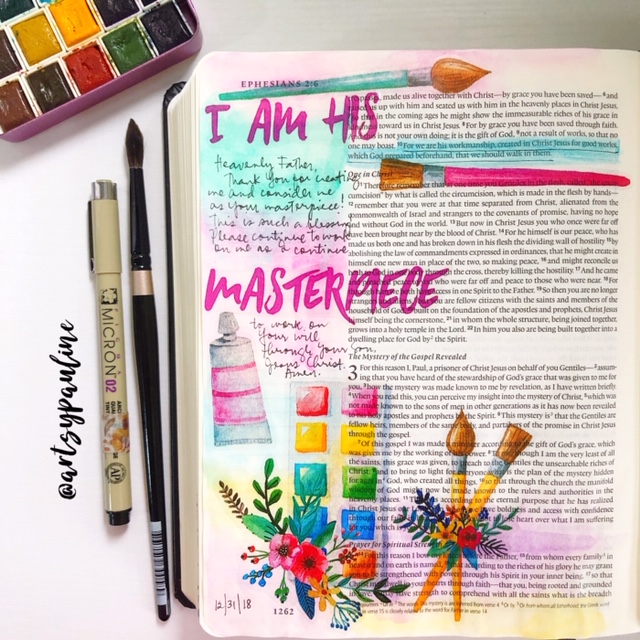 EPHESIANS 2:6
I AM HIS
Heavenly Father,
Thank You for creating
me and consider me
as your masterpiece!
This is such a blessing
Please continue to work
on me as I continue
MASTERPIECE
to work on
Your will
through Your Son,
Jesus Christ.
Amen.
12/31/18
1262
made us alive together with Christ—by grace you have been saved— 6 and
raised us up with him and seated us with him in the heavenly places in Christ Jesus,
in the coming ages he might show the immeasurable riches of his grace in
toward us in Christ Jesus. 8 For by grace you have been saved through faith.
this is not your own doing; it is the gift of God, 9 not a result of works, so that no
one may boast. 10 For we are his workmanship, created in Christ Jesus for good works,
which God prepared beforehand, that we should walk in them.
One in Christ
11 Therefore remember that at one time you Gentiles in the flesh, called
cumcision” by what is called the circumcision, which is made in the flesh by hands—
12 remember that you were at that time separated from Christ, alienated from the
commonwealth of Israel and strangers to the covenants of promise, having no hope
and without God in the world. 13 But now in Christ Jesus you who once were far off
have been brought near by the blood of Christ. 14 For he himself is our peace, who has
made us both one and has broken down in his flesh the dividing wall of hostility 15 by
abolishing the law of commandments expressed in ordinances, that he might create in
himself one new man in place of the two, so making peace, 16 and might reconcile us
both to God in one body through the cross, thereby killing the hostility. 17 And he came
peace to you who were far off and peace to those who were near. 18 For
through him we both have access in one Spirit to the Father. 19 So then you are no longer
strangers and aliens, but you are fellow citizens with the saints and members of the
household of God, built on the foundation of the apostles and prophets, Christ Jesus
himself being the cornerstone, 21 in whom the whole structure, being joined together,
grows into a holy temple in the Lord. 22 In him you also are being built together into a
dwelling place for God by the Spirit.
The Mystery of the Gospel Revealed
3 For this reason I, Paul, a prisoner of Christ Jesus on behalf of you Gentiles— 2 assum-
ing that you have heard of the stewardship of God's grace that was given to me for
you, 3 how the mystery was made known to me by revelation, as I have written briefly.
4 When you read this, you can perceive my insight into the mystery of Christ, 5 which
was not made known to the sons of men in other generations as it has now been revealed
to his holy apostles and prophets by the Spirit. 6 This mystery is that the Gentiles are
fellow heirs, members of the same body, and partakers of the promise in Christ Jesus
through the gospel.
7 Of this gospel I was made a minister according to the gift of God's grace, which
was given me by the working of his power. 8 To me, though I am the very least of all
the saints, this grace was given, to preach to the Gentiles the unsearchable riches of
Prayer for Spiritual Strength
14 For this reason I bow my knees before the Father, 15 from whom every family
MICRON 02
@artsypauline